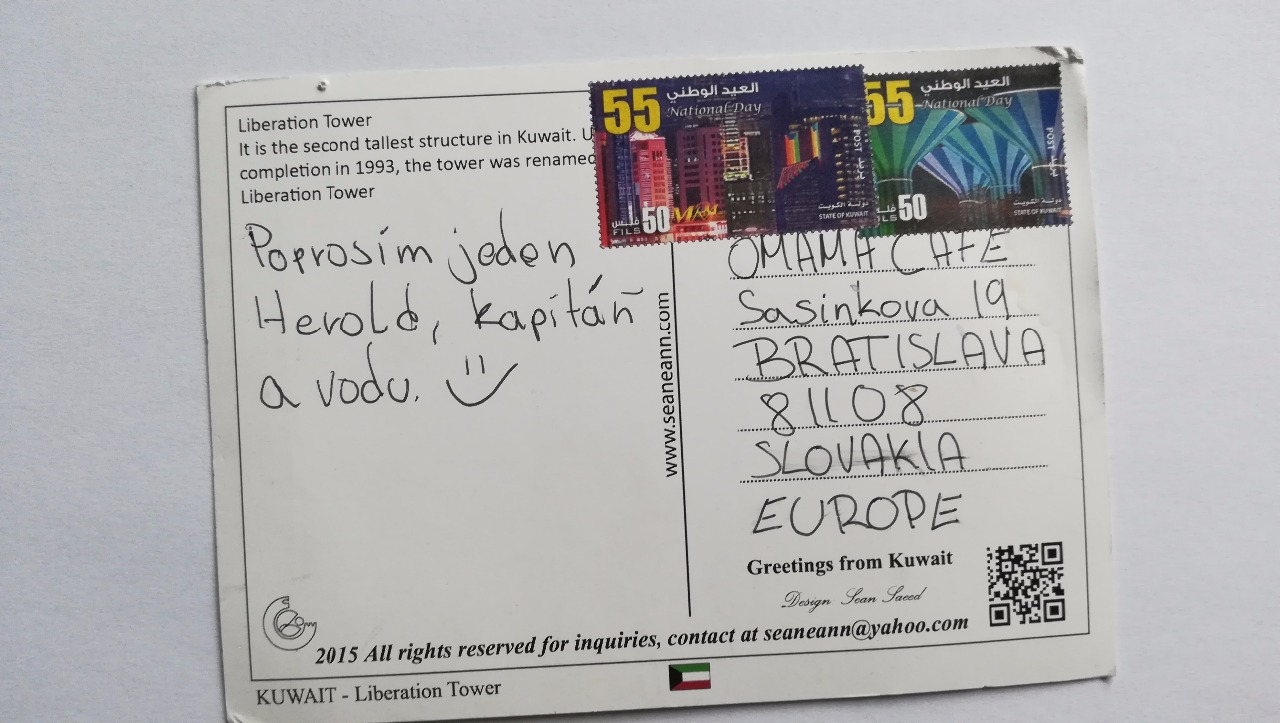 Liberation Tower
It is the second tallest structure in Kuwait. U
completion in 1993, the tower was renamed
Liberation Tower
Poprosím jeden
Herold, kapitáň
a vodu.
55
العيد الوطني
National Day
POST بريد
دولة الكويت
STATE OF KUWAIT
فلس
FILS 50
55
العيد الوطني
National Day
POST بريد
دولة الكويت
STATE OF KUWAIT
فلس
ILS 50
www.seaneann.com
OMAMA CAFE
Sasinkova 19
BRATISLAVA
81108
SLOVAKIA
EUROPE
Greetings from Kuwait
Design Sean Saeed
2015 All rights reserved for inquiries, contact at seaneann@yahoo.com
KUWAIT - Liberation Tower